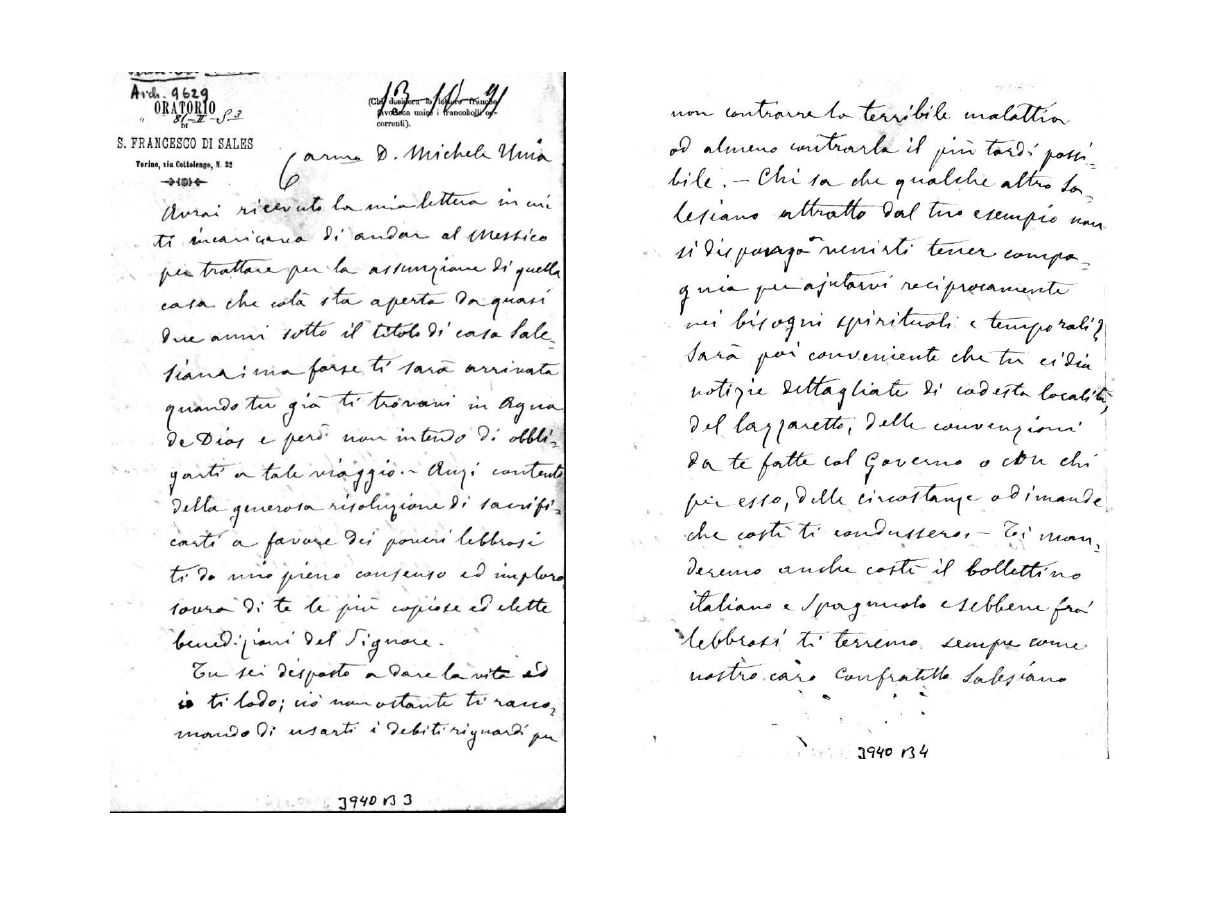 Arch. 9629
ORATORIO
DI
S. FRANCESCO DI SALES
Torino, via Cottolengo, N. 32
(Chi desidera la lettera franche
favorisca unire i francobolli oc-
correnti).
Carmo D. Michele Unia
Avrai ricevuto la mia lettera in cui
ti incaricava di andar al Messico
per trattare per la assunzione di quella
casa che colà sta aperta da quasi
due anni sotto il titolo di casa Sale-
siana; ma forse ti sarà arrivata
quando tu già ti trovavi in Agua
de Dios e però non intendo di obbli-
garti a tale viaggio. - Anzi contento
della generosa risoluzione di sacrifi-
carti a favore dei poveri lebbrosi
ti do mio pieno consenso ed imploro
sovra di te le più copiose ed elette
benedizioni del Signore.
Tu sei disposto a dare la vita ed
io ti lodo; ciò non ostante ti racco-
mando di usarti i debiti riguardi per
3940 B 3
non contrarre la terribile malattia
od almeno contrarla il più tardi possi-
bile. - Chi sa che qualche altro Sa-
lesiano attratto dal tuo esempio non
si disponga a venirti tener compa-
gnia per ajutarvi reciprocamente
nei bisogni spirituali e temporali?
Sarà poi conveniente che tu ci dia
notizie dettagliate di codesta località,
del lazzaretto, delle convenzioni
da te fatte col Governo o con chi
per esso, delle circostanze o dimande
che costì ti condussero. - Ti man-
deremo anche costì il bollettino
italiano e Spagnuolo e sebbene fra i
lebbrosi ti terremo sempre come
nostro caro Confratello Salesiano
3940 B 4